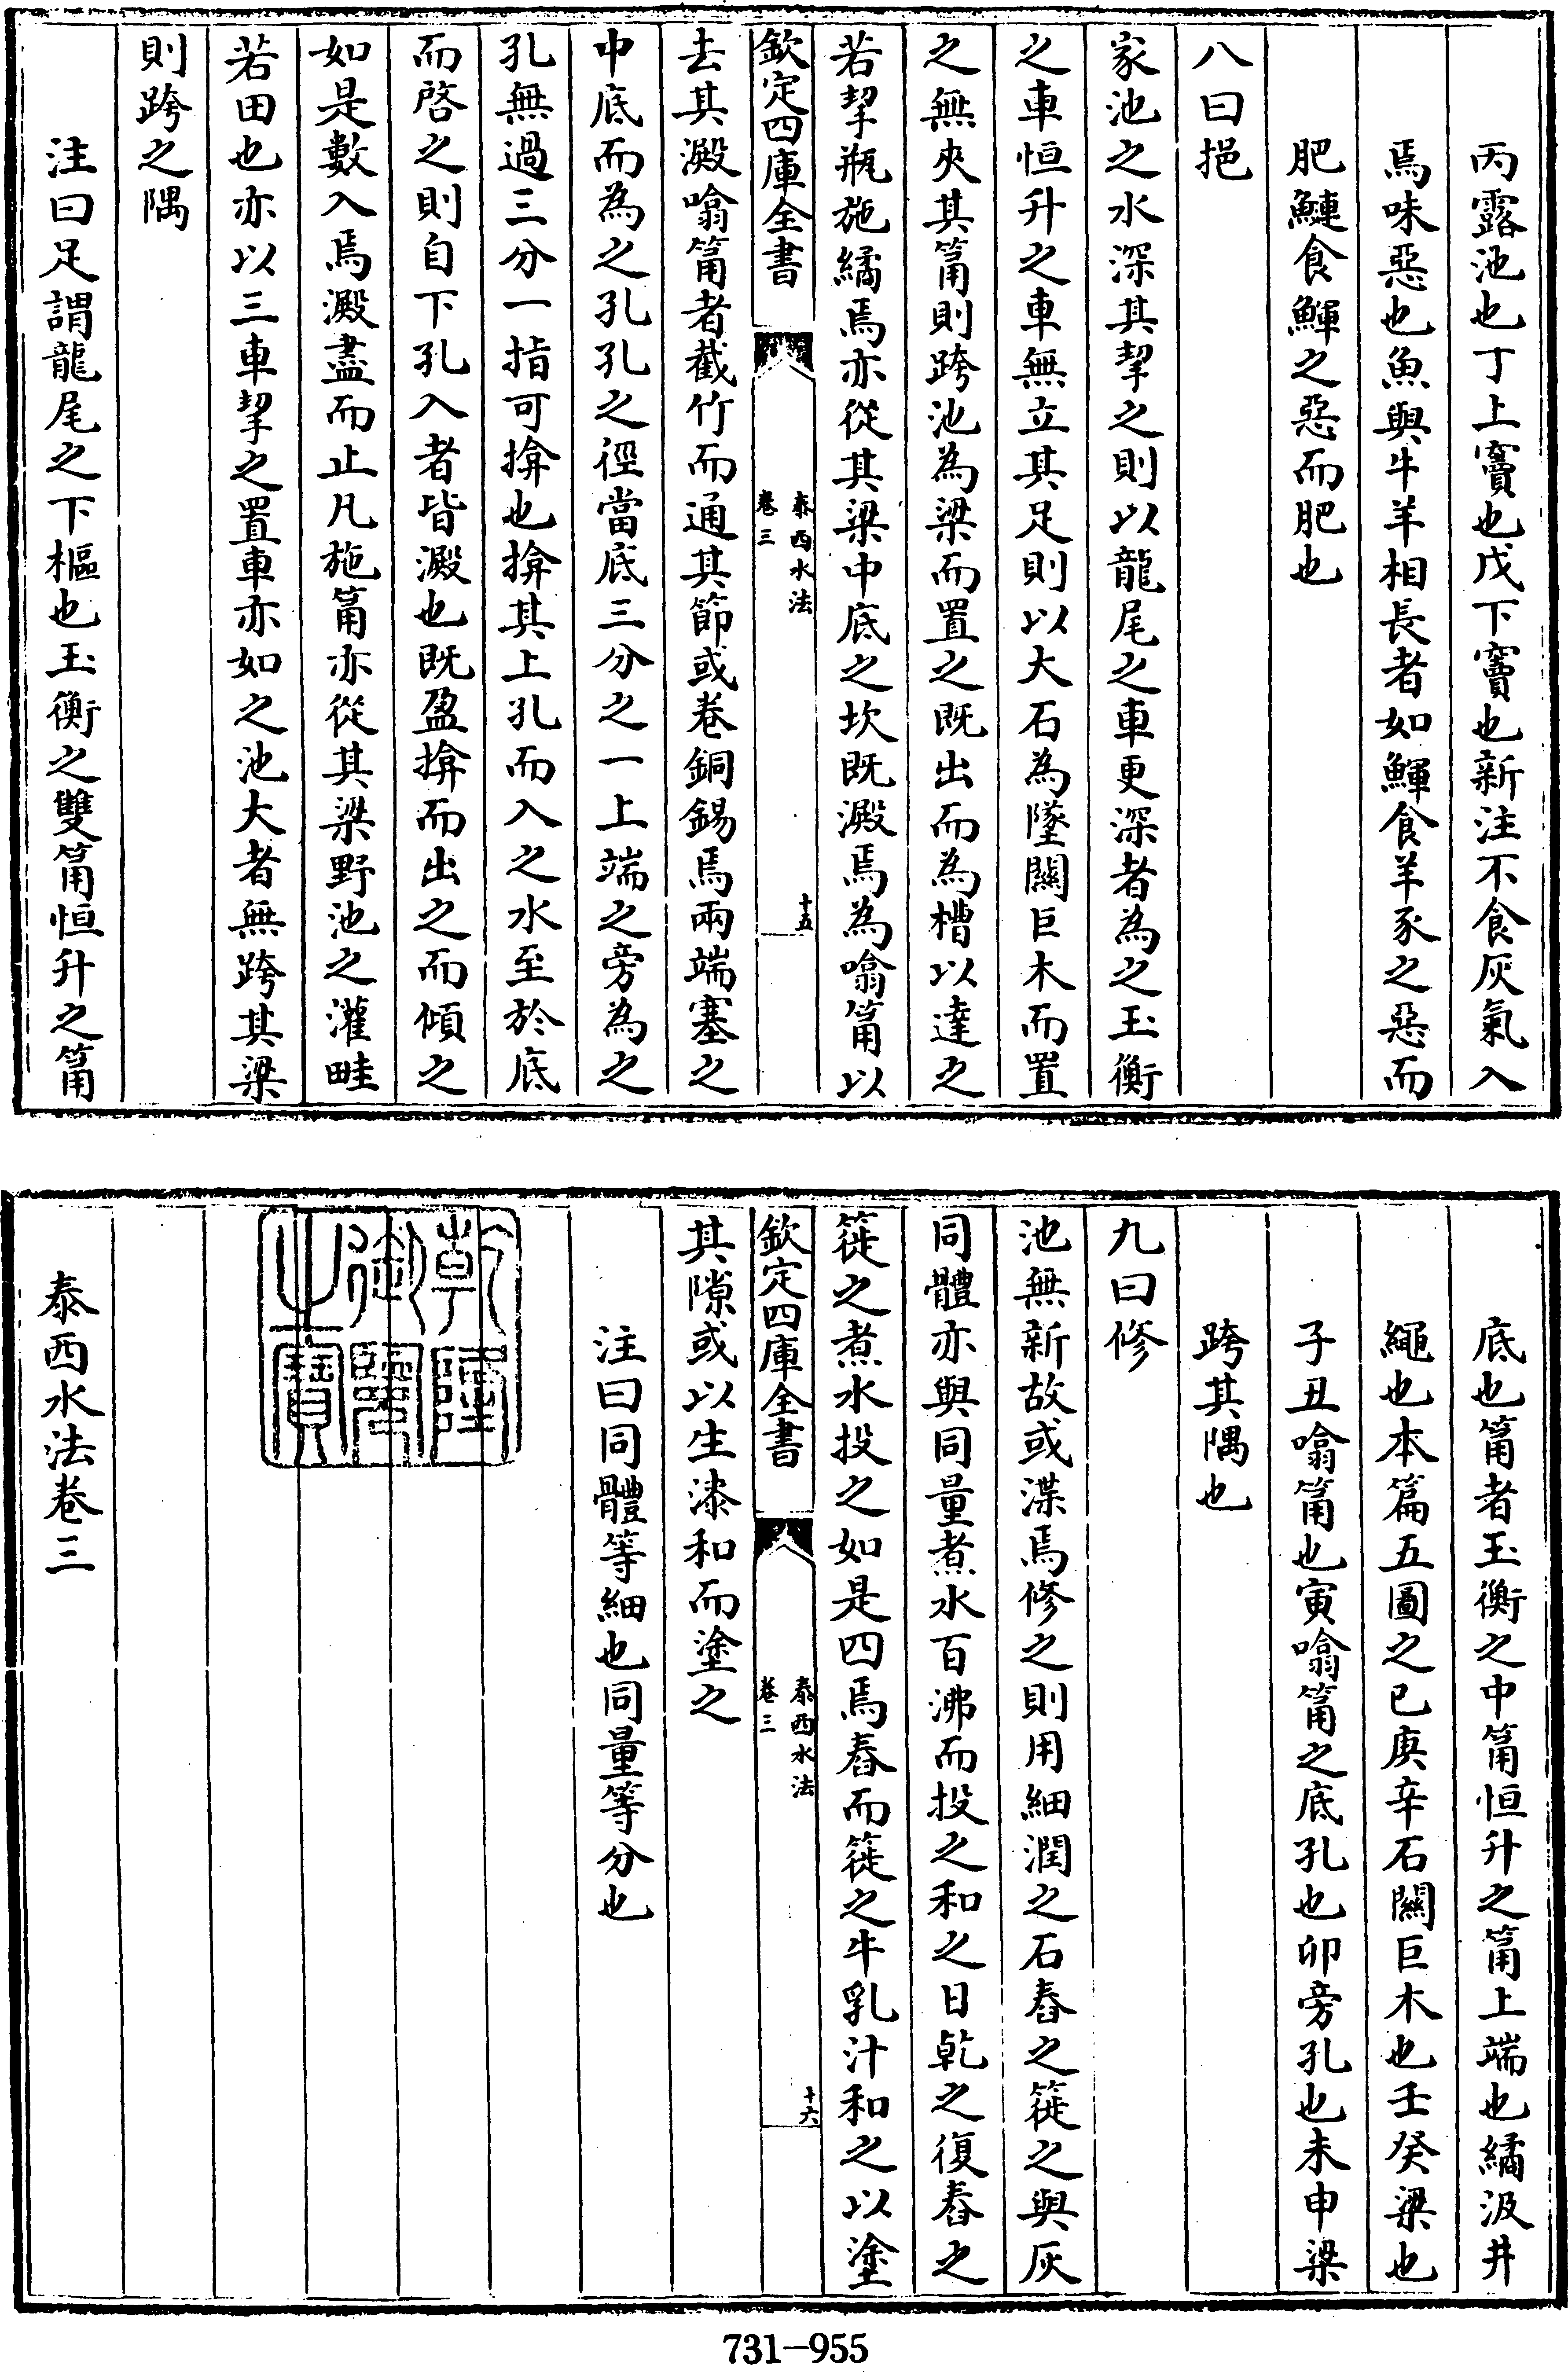 丙露池也丁上竇也戊下竇也新注不食灰氣入
焉味惡也魚與牛羊相長者如鯶食羊豕之惡而
肥鰱食鯶之惡而肥也
八曰挹
家池之水深其挈之則以龍尾之車更深者為之玉衡
之車恒升之車無立其足則以大石為墜闗巨木而置
之無夾其筩則跨池為梁而置之既出而為槽以達之
若挈瓶施繘焉亦從其梁中底之坎既澱焉為噏筩以
欽定四庫全書
泰西水法
卷三
十五
去其澱噏筩者截竹而通其節或卷銅錫焉兩端塞之
中底而為之孔孔之徑當底三分之一上端之旁為之
孔無過三分一指可揜也揜其上孔而入之水至於底
而啓之則自下孔入者皆澱也既盈揜而出之而傾之
如是數入焉澱盡而止凡施筩亦從其梁野池之灌畦
若田也亦以三車挈之置車亦如之池大者無跨其梁
則跨之隅
注曰足謂龍尾之下樞也玉衡之雙筩恒升之筩
底也筩者玉衡之中筩恒升之筩上端也繘汲井
繩也本篇五圖之己庚辛石闗巨木也壬癸梁也
子丑噏筩也寅噏筩之底孔也卯旁孔也未申梁
跨其隅也
九曰修
池無新故或渫焉修之則用細潤之石舂之簁之與灰
同體亦與同量煮水百沸而投之和之日乾之復舂之
簁之煮水投之如是四焉舂而簁之牛乳汁和之以塗
欽定四庫全書
泰西水法
卷三
十六
其隙或以生漆和而塗之
注曰同體等細也同量等分也
乾隆御覽之寶
泰西水法卷三
731-955